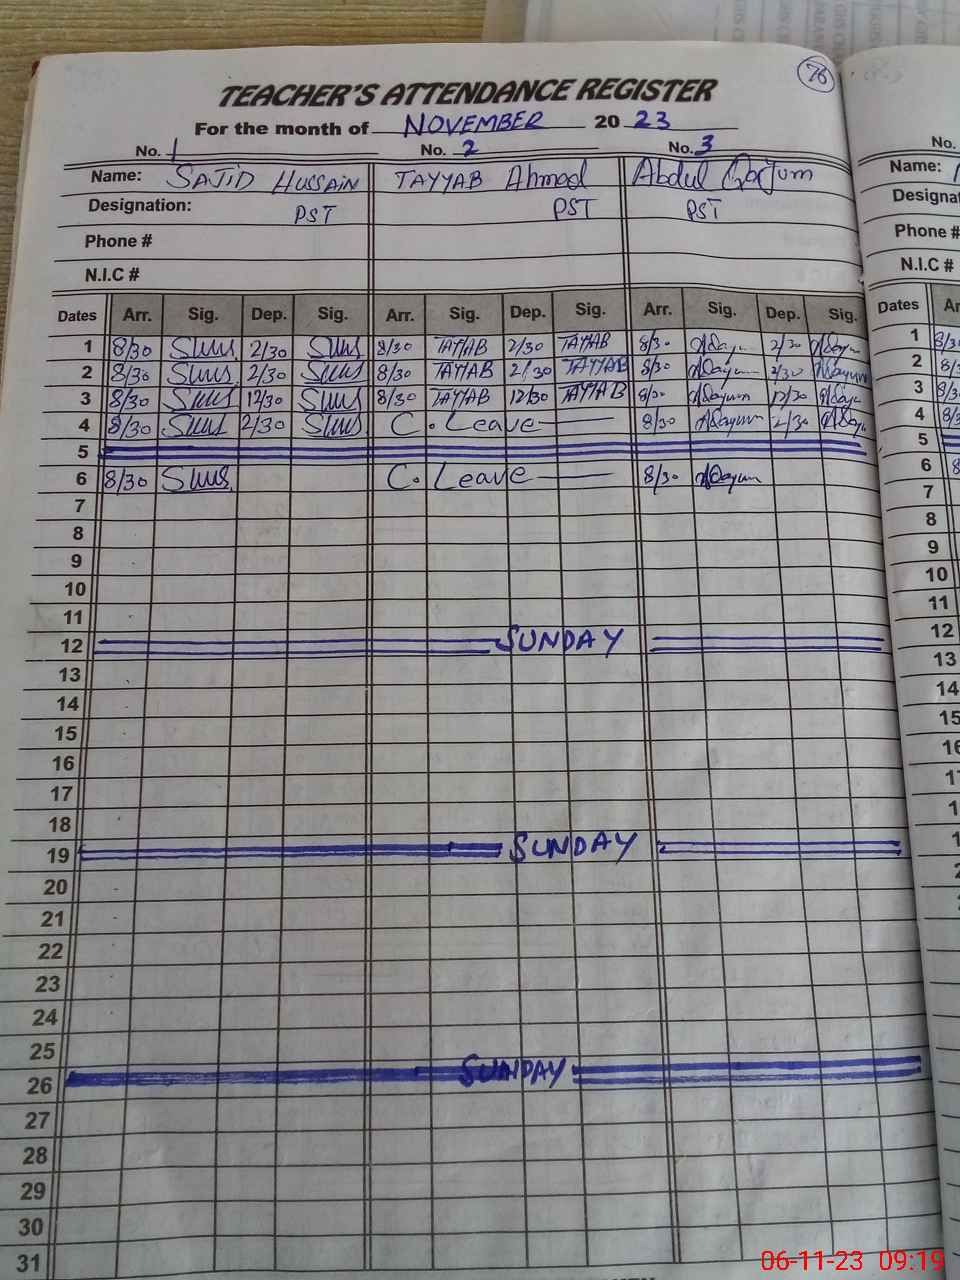 76
TEACHER'S ATTENDANCE REGISTER
For the month of NOVEMBER 20 23
No. 1 No. 2 No. 3 No.
Name: SAJID HUSSAIN TAYYAB Ahmad Abdul Qayum Name:
Designation: PST PST PST
Phone # Phone #
N.I.C # N.I.C #
Dates Arr. Sig. Dep. Sig. Arr. Sig. Dep. Sig. Arr. Sig. Dep. Sig. Dates
1 8/30 2/30 8/30 TAYYAB 2/30 TAYYAB 8/30 2/30 1
2 8/30 2/30 8/30 TAYYAB 2/30 TAYYAB 8/30 2/30 2
3 8/30 12/30 8/30 TAYYAB 12/30 TAYYAB 8/30 12/30 3
4 8/30 2/30 C. Leave 8/30 2/30 4
5 5
6 8/30 C. Leave 8/30 6
7 7
8 8
9 9
10 10
11 11
12 SUNDAY 12
13 13
14 14
15 15
16
17
18
19 SUNDAY
20
21
22
23
24
25
26 SUNDAY
27
28
29
30
31
06-11-23 09:19